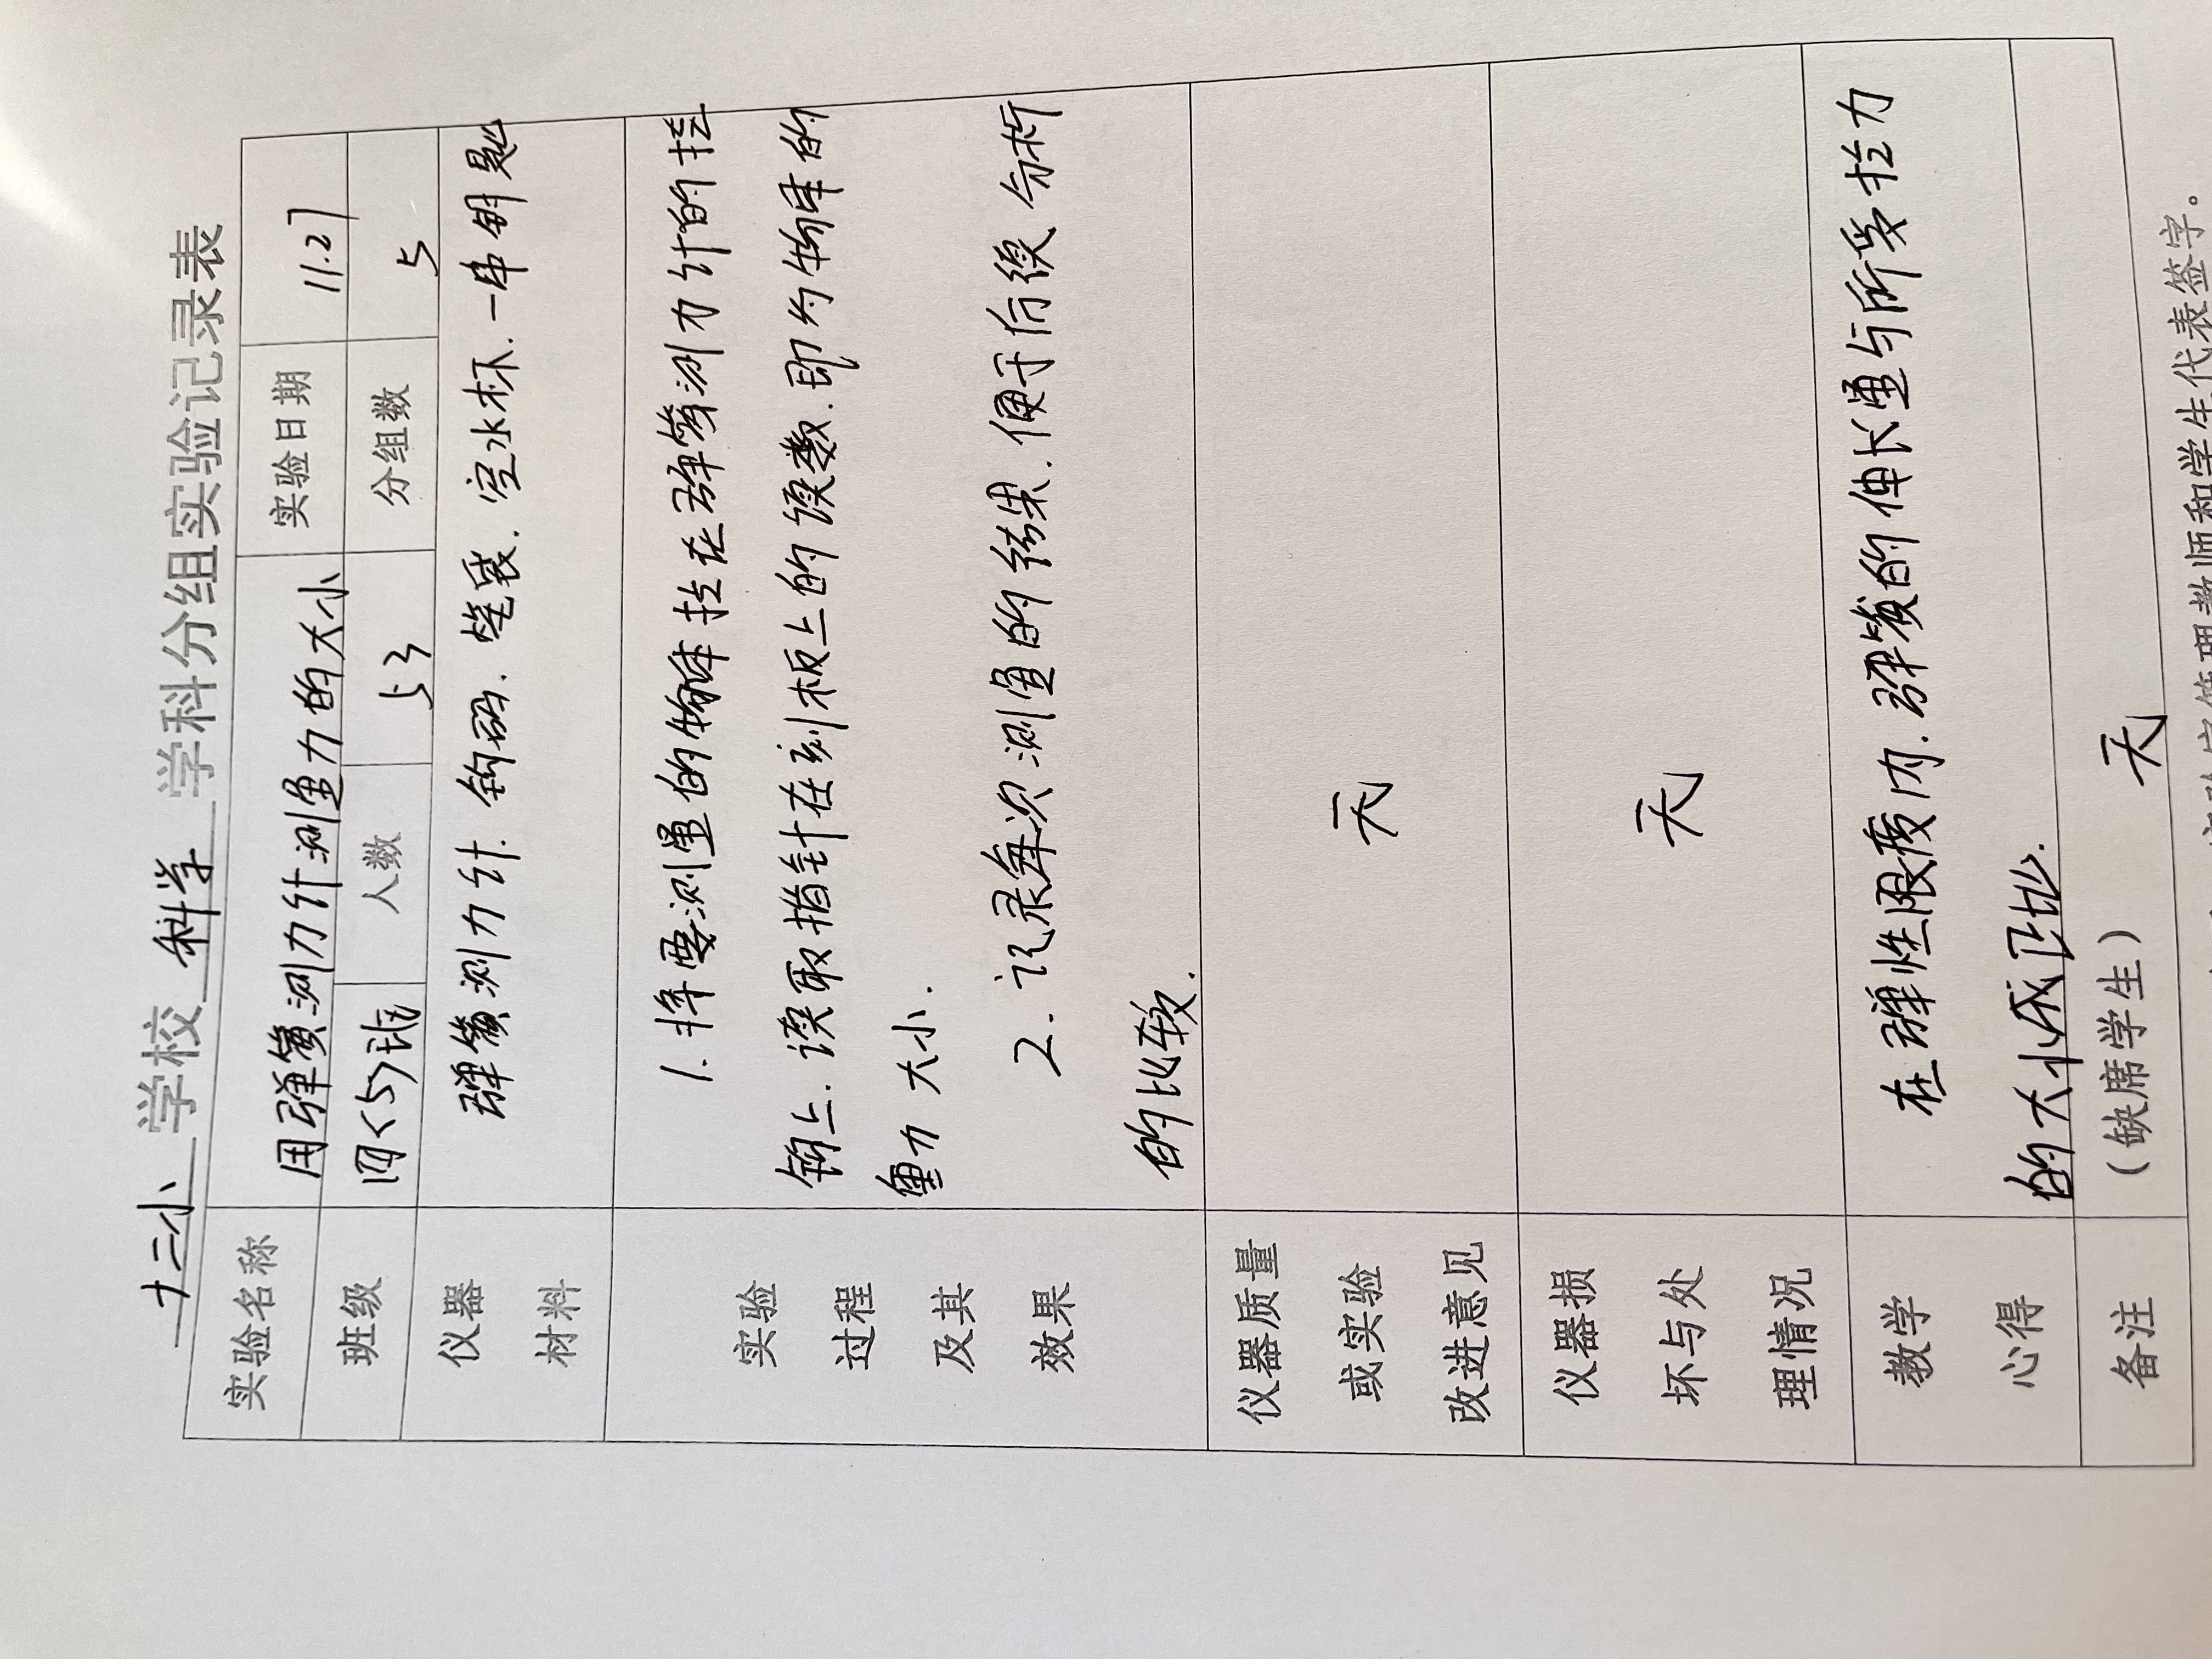 十三小 学校 科学 学科分组实验记录表
实验名称 用弹簧测力计测量力的大小 实验日期 11.27
班级 四<5>班 人数 53 分组数 5
仪器材料 弹簧测力计、钩码、笔袋、空水杯、一串钥匙
实验过程及其效果 1. 将要测量的物体挂在弹簧测力计的挂
钩上、读取指针在刻板上的读数、即为物体的
重力大小.
2. 记录每次测量的结果、便于后续分析
的比较.
仪器质量或实验改进意见 无
仪器损坏与处理情况 无
教学心得 在弹性限度内、弹簧的伸长量与所受拉力
的大小成正比.
备注 (缺席学生) 无
管理教师和学生代表签字。